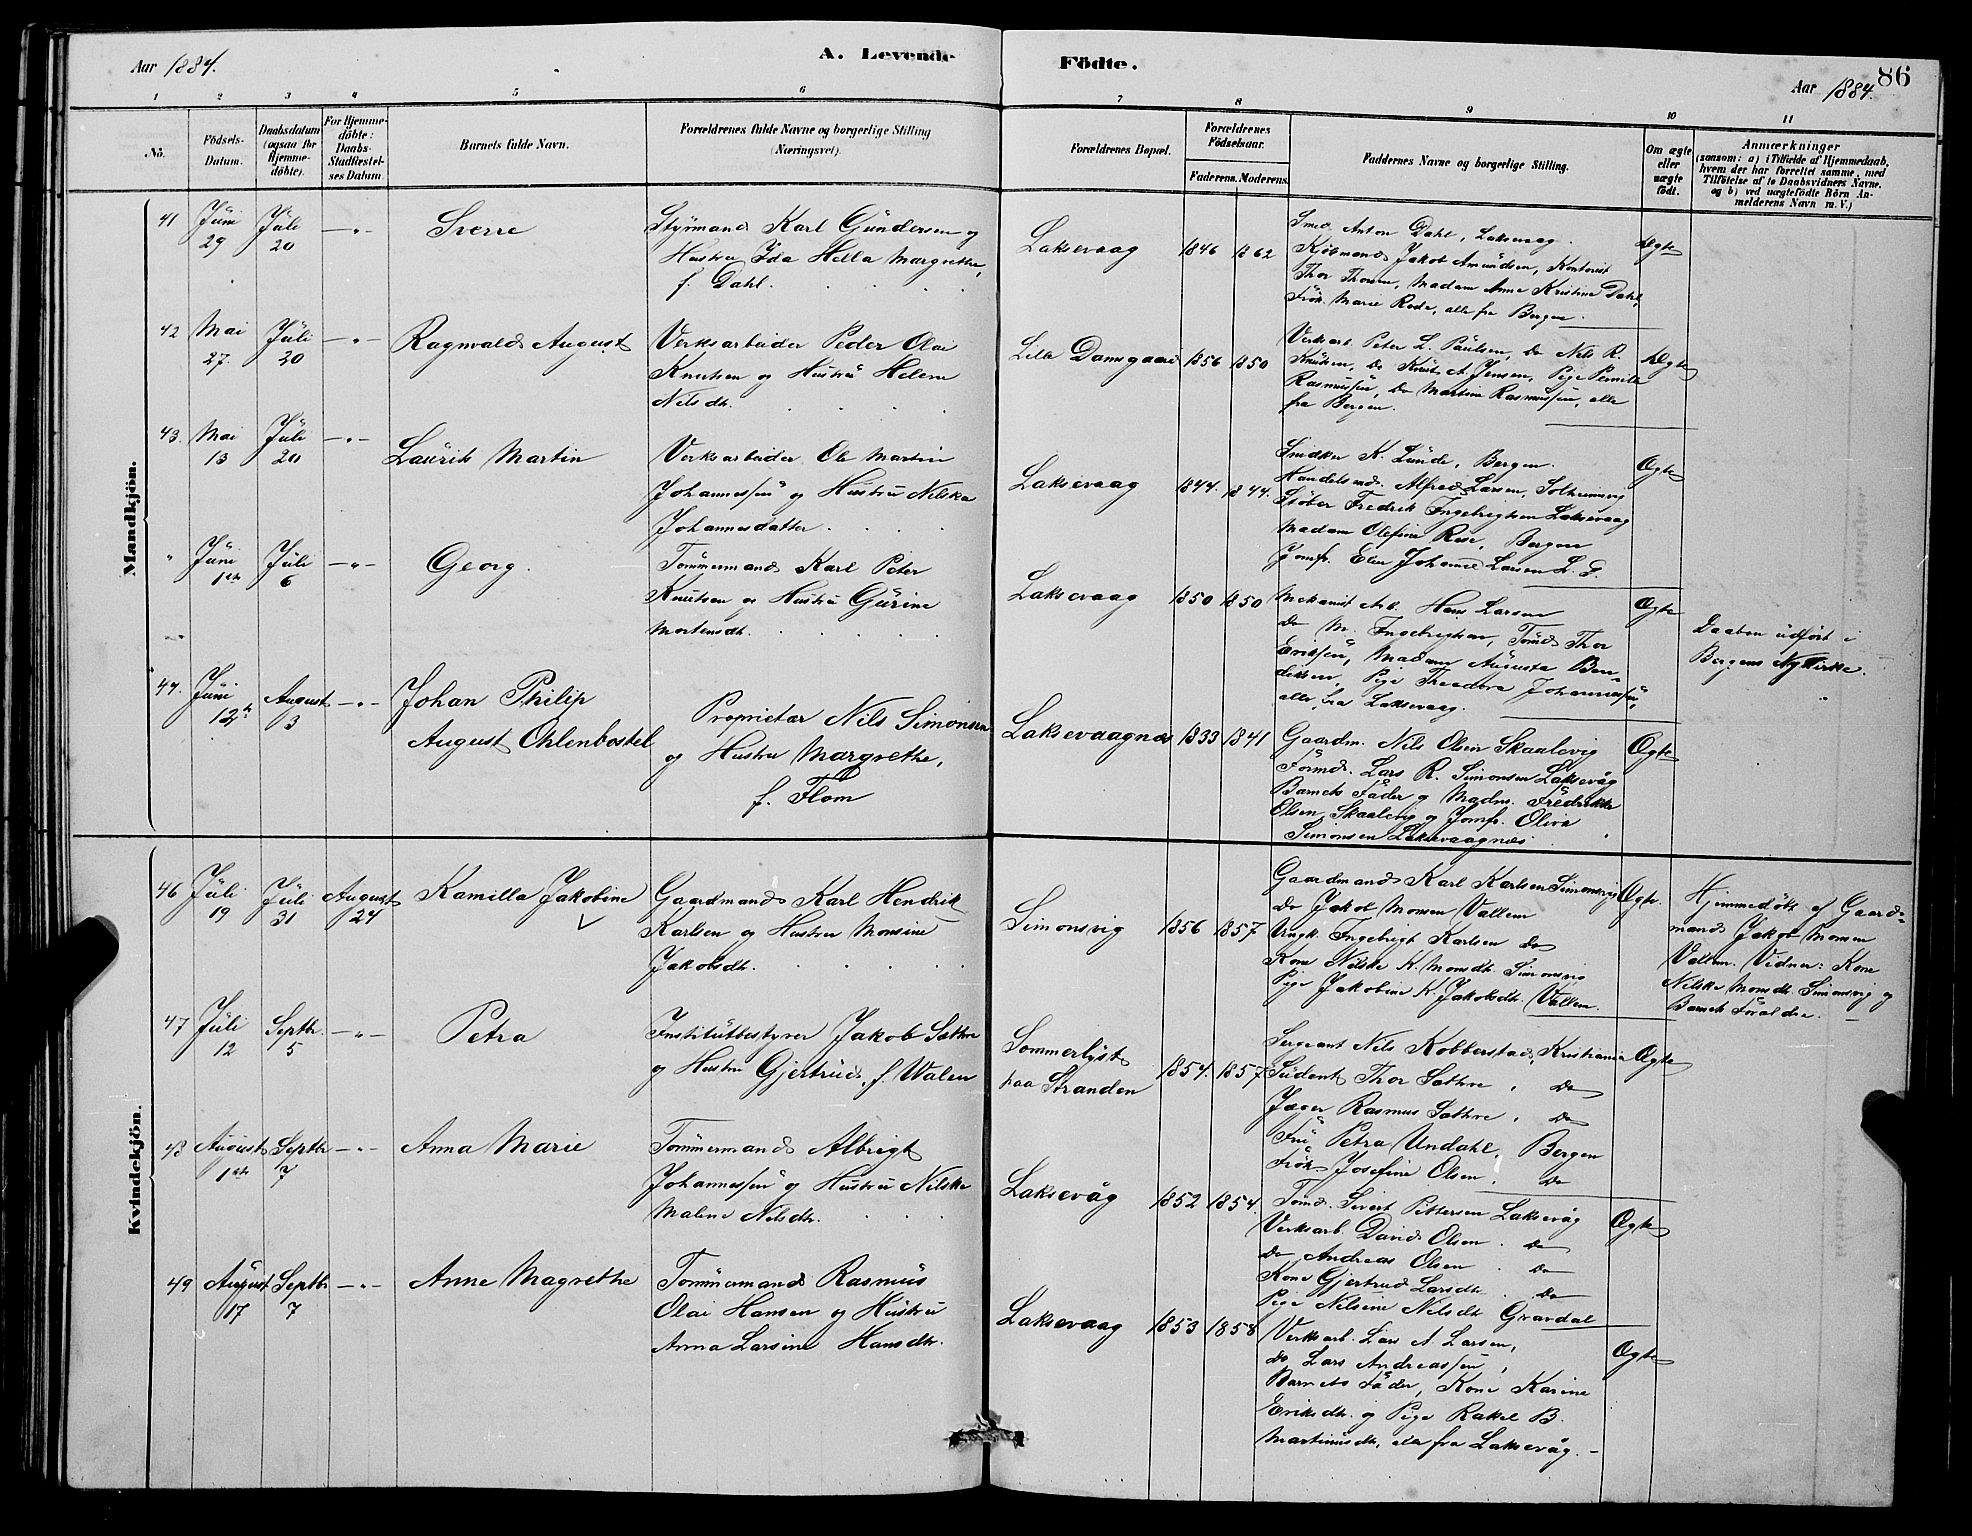 Aar 1884.
A. Levende
Födte.
86
Aar 1884.
1 2 3 4 5 6 7 8 9 10 11
No.
Födsels-
Datum.
Daabsdatum
(ogsaa for
Hjemme-
döbte).
For Hjemme-
döbte:
Daabs-
Stadfæstel-
ses Datum
Barnets fulde Navn.
Forældrenes fulde Navne og borgerlige Stilling
(Næringsvei).
Forældrenes Bopæl.
Forældrenes
Födselsaar.
Faderens. Moderens.
Faddernes Navne og borgerlige Stilling.
Om ægte
eller
uægte
födt.
Anmærkninger
(saasom: a) i Tilfælde af Hjemmedaab,
hvem der har forrettet samme, med
Tilföielse af to Daabsvidners Navne,
og b) ved uægtefödte Börn An-
melderens Navn m. V.)
Mandkjön.
41
Juni
29
Juli
20
— " —
Sverre
Styrmand Karl Gundersen og
Hustru Ida Hella Margrethe,
f. Dahl.
Laksevaag
1846
1862
Smed Anton Dahl, Laksevaag.
Kjöbmand Jakob Amundsen, Kontorist
Thor Thorsen, Madam Anne Kristine Dahl,
Frök. Marie Rode, alle fra Bergen.
Ægte
42
Mai
27.
Juli
20
— " —
Ragnvald August
Verksarbeider Peder Olai
Knutsen og Hustru Helene
Nilsdtr.
Lille Damsgaard
1856
1850
Verksarb. Peter L. Paulsen, Do Nils R.
Knutsen, Do Knut A. Jensen, Pige Pernille
Rasmussen, Do Martine Rasmussen, alle
fra Bergen.
Ægte
43.
Mai
13
Juli
20
— " —
Laurits Martin
Verksarbeider Ole Martin
Johannessen og Hustru Nilska
Johannesdatter.
Laksevaag
1844.
1844.
Snidker K. Lunde, Bergen.
Handelsmd. Alfred Larsen, Solheimsvig
Stöber Fredrik Ingebrigtsen Laksevaag
Madam Olefine Rose, Bergen
Jomfr. Elen Johanne Larsen L. P.
Ægte
"
Juni
1ste
Juli
6
— " —
Georg.
Tömmermand Karl Peter
Knutsen og Hustru Gurine
Mortensdtr.
Laksevaag
1850
1850
Mekanisk Arb. Hans Larsen
Do M. Ingebrigtsen, Tömd. Thor
Eriksen, Madam Augusta Ben-
diksen, Pige Theodora Johannessen,
alle fra Laksevaag.
Ægte
Daaben udfört i
Bergens Nykirke.
44.
Juni
12te
August
3
— " —
Johan Philip
August Ohlenbostel
Proprietær Nils Simonsen
og Hustru Margrethe,
f. Flom
Laksevaagnæs
1833
1841
Gaardm. Nils Olsen Skaalevig
Formd. Lars R. Simonsen Laksevåg
Barnets Fader og Madm. Fredrikke
Olsen Skaalevig og Jomfr. Oliva
Simonsen Laksevaagnæs
Ægte
Kvindekjön.
46
Juli
19
Juli
31
August
24
Kamilla Jakobine
Gaardmand Karl Hendrik
Karlsen og Hustru Monsine
Jakobsdtr.
Simonsvig
1856
1857
Gaardmand Karl Karlsen Simonsvig
Do Jakob Monsen Vallem
Ungk. Ingebrigt Karlsen Do
Kone Nilske K. Monsdtr. Simonsvig
Pige Jakobine K. Jakobsdtr. Vallem.
Ægte.
Hjemmedöbt af Gaard-
mand Jakob Monsen
Vallem. Vidner: Kone
Nilske Monsdtr. Simonsvig og
Barnets Forældre.
47
Juli
12
Septbr.
5
— " —
Petra
Institutbestyrer Jakob Sæthre
og Hustru Gjertrud, f. Walen
Sommerlyst
paa Stranden
1854.
1857
Sergeant Nils Kobberstad, Kristiania
Student Thor Sæthre, Do
Jæger Rasmus Sæthre, Do
Fru Petra Undahl, Bergen
Frök. Josefine Olsen, Do
Ægte
48
August
1ste
Septbr
7
— " —
Anna Marie
Tömmermand Albrigt
Johannessen og Hustru Nilske
Malene Nilsdtr.
Laksevåg
1852
1854.
Tömd. Sivert Pettersen Laksevåg
Verksarb. David Olsen. Do
Do Andreas Olsen. Do
Kone Gjertrud Larsdtr. Do
Pige Nilsine Nilsdtr Gravdal
Ægte
49
August
17
Septbr
7
— " —
Anne Magrethe
Tömmermand Rasmus
Olai Hansen og Hustru
Anna Larsine Hansdtr.
Laksevaag
1853
1858
Verksarb. Lars A. Larsen,
do Lars Andreassen,
Barnets Fader, Kone Karine
Eriksdtr. og Pige Rakel B.
Martinusdtr, alle fra Laksevåg.
Ægte